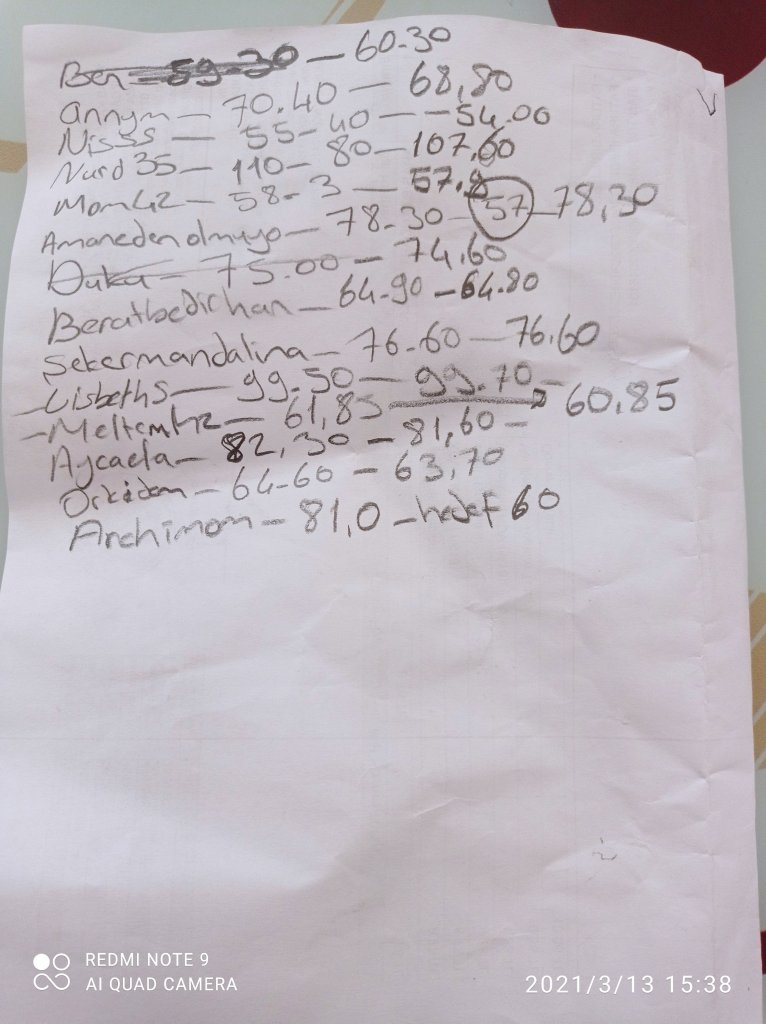 Ben 59-30 - 60.30
annym - 70.40 - 68,80
Nisss - 55-40 - -54.00
Nurd35 - 110-80 - 107,60
Mom42 - 58-3 - 57.8
Amanedenolmuyo - 78-30 - 57 - 78,30
Duka - 75.00 - 74,60
Beratbedirhan - 64-90 - 64.80
Sekermandalina - 76-60 - 76.60
- Lisbeths - 99-50 - 99.70 -
- Meltem42 - 61,85 → 60,85
Aycaela - 82,30 - 81,60 -
Orkidem - 64-60 - 63,70
Archimom - 81,0 - hedef 60
REDMI NOTE 9
AI QUAD CAMERA
2021/3/13 15:38